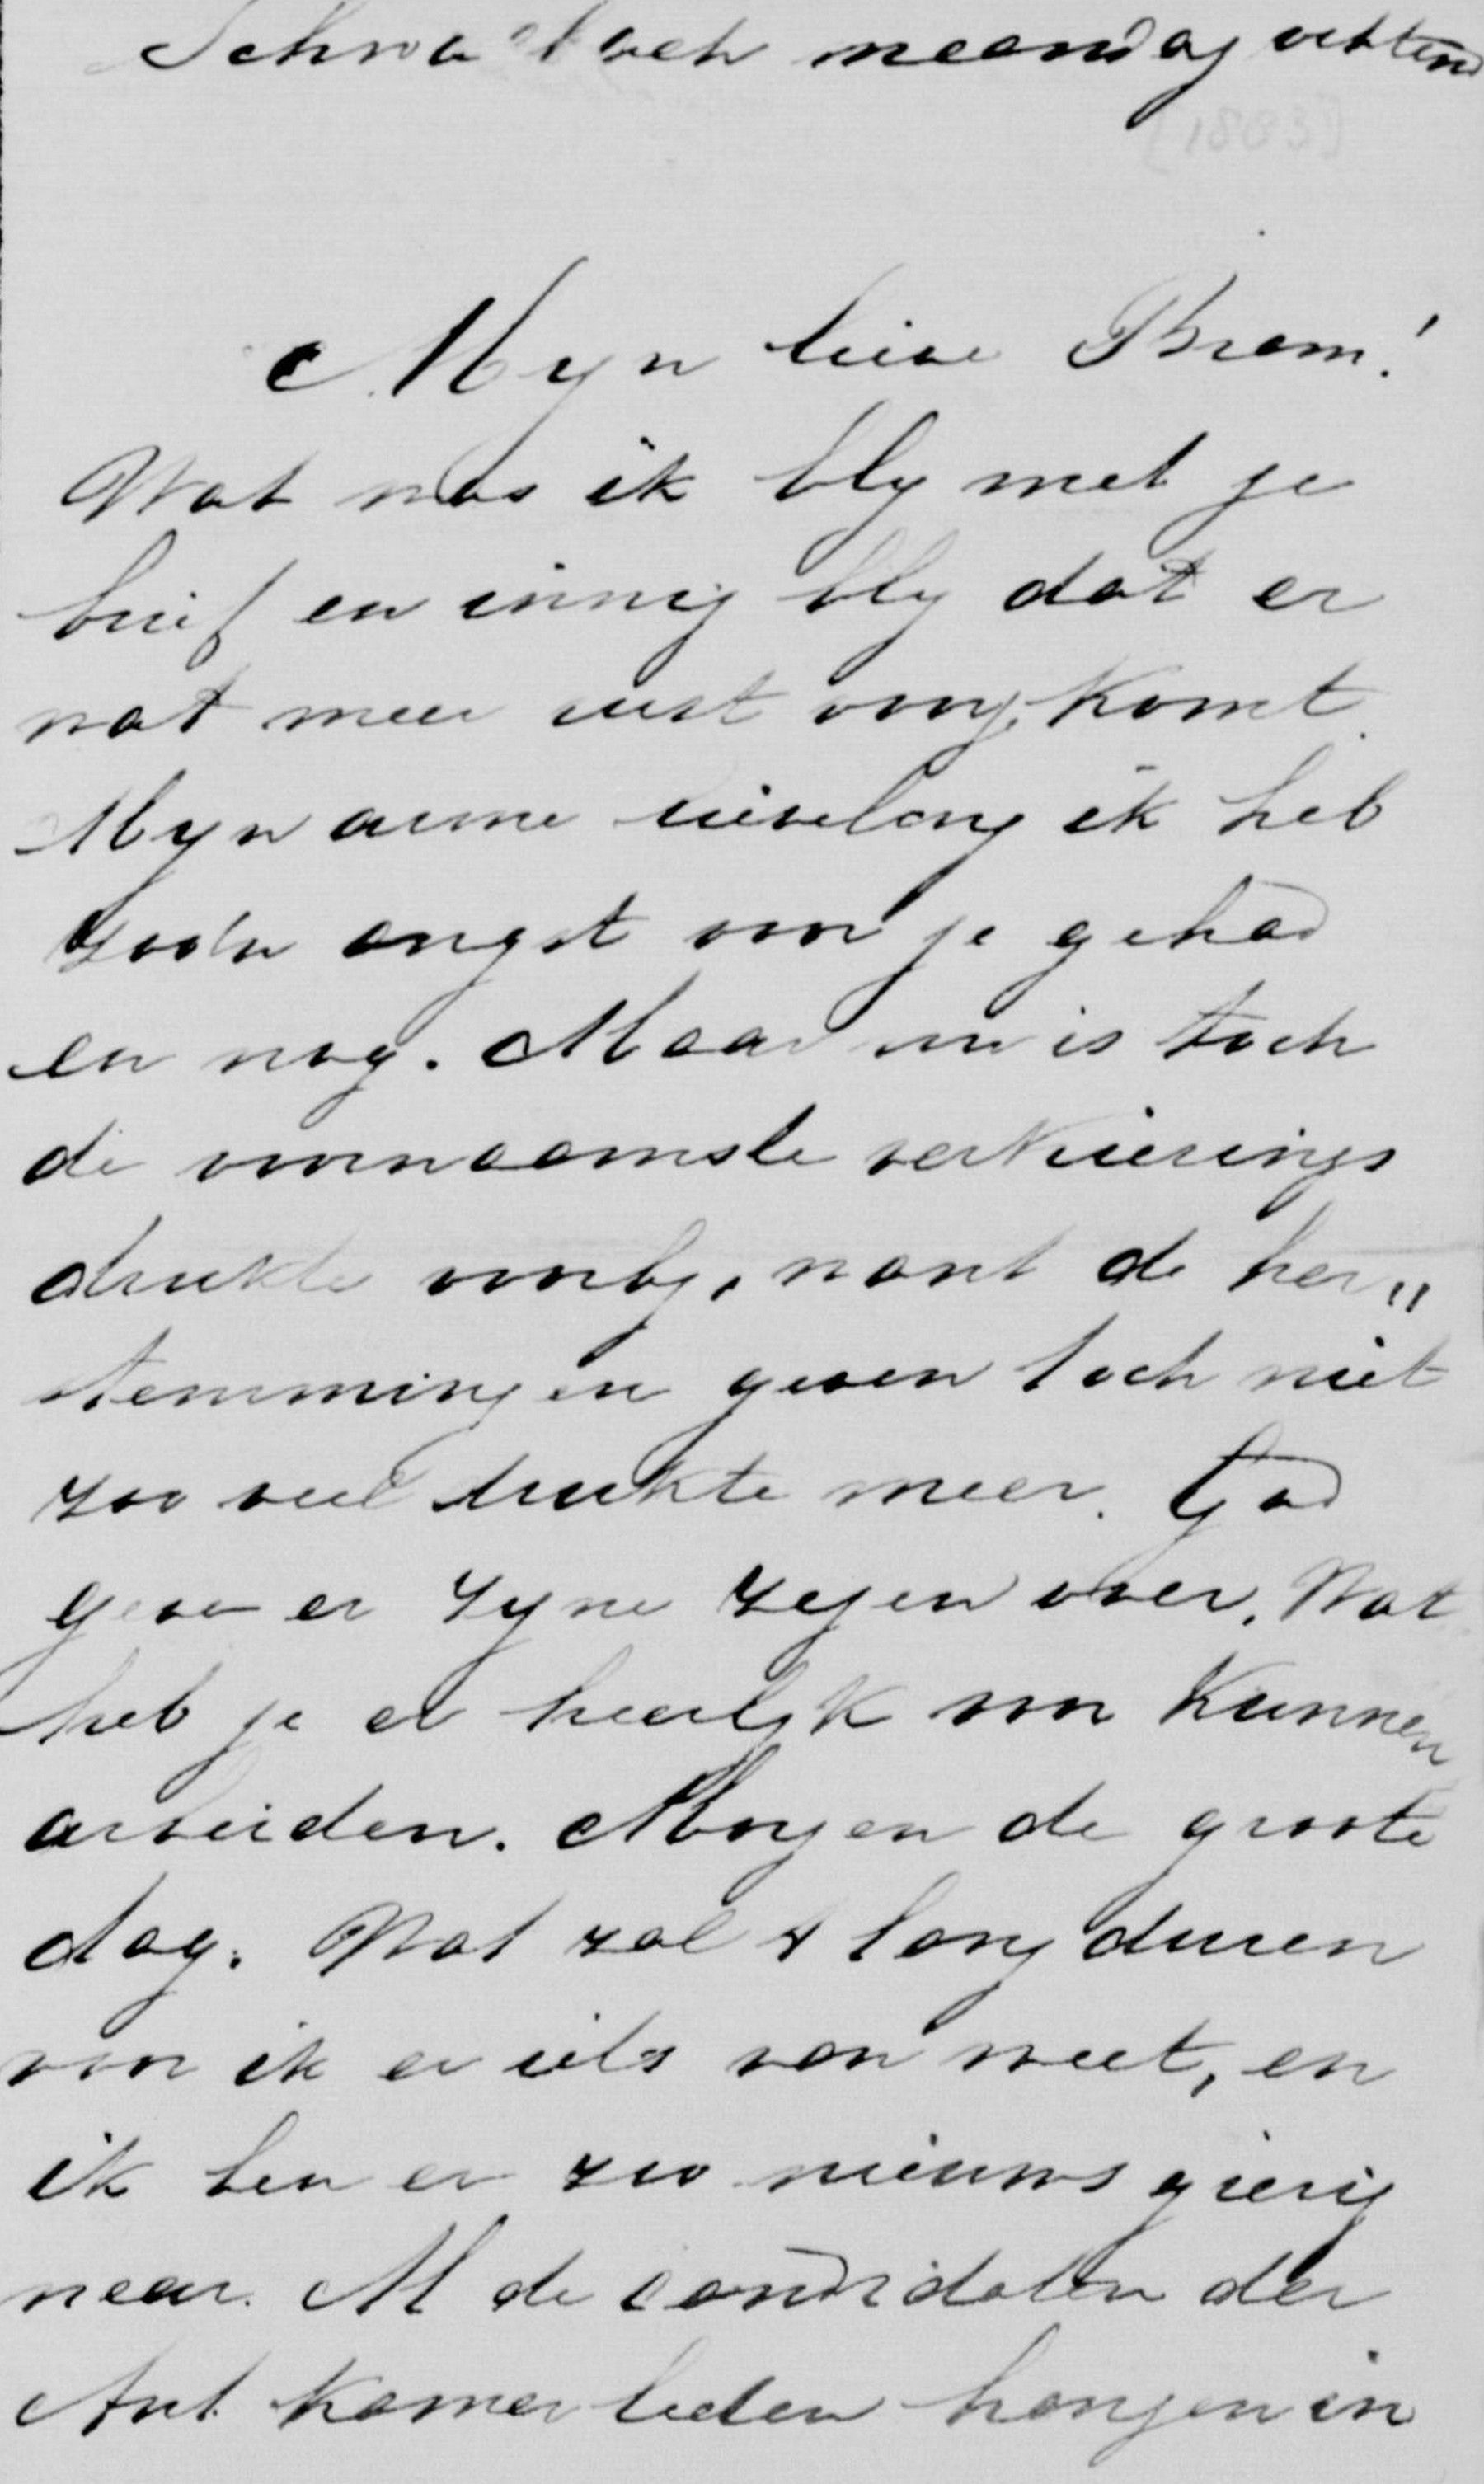 Schwalbach maandag ochtend
[1883]
Myn lieve Bram!
Wat was ik bly met je
brief en innig bly dat er
wat meer rust voor je komt.
Myn arme lieveling ik heb
zoo'n angst voor je gehad
en nog. Maar nu is toch
de voornaamste verkiezings
drukte voorby, want de her„
stemmingen geven toch niet
zoo veel drukte meer. God
geve er zyne zegen over. Wat
heb je er heerlyk voor kunnen
arbeiden. Morgen de groote
dag. Wat zal 't lang duren
voor ik er iets van weet, en
ik ben er zoo nieuwsgierig
naar. Al de candidaten der
Ant. Kamerleden hangen in